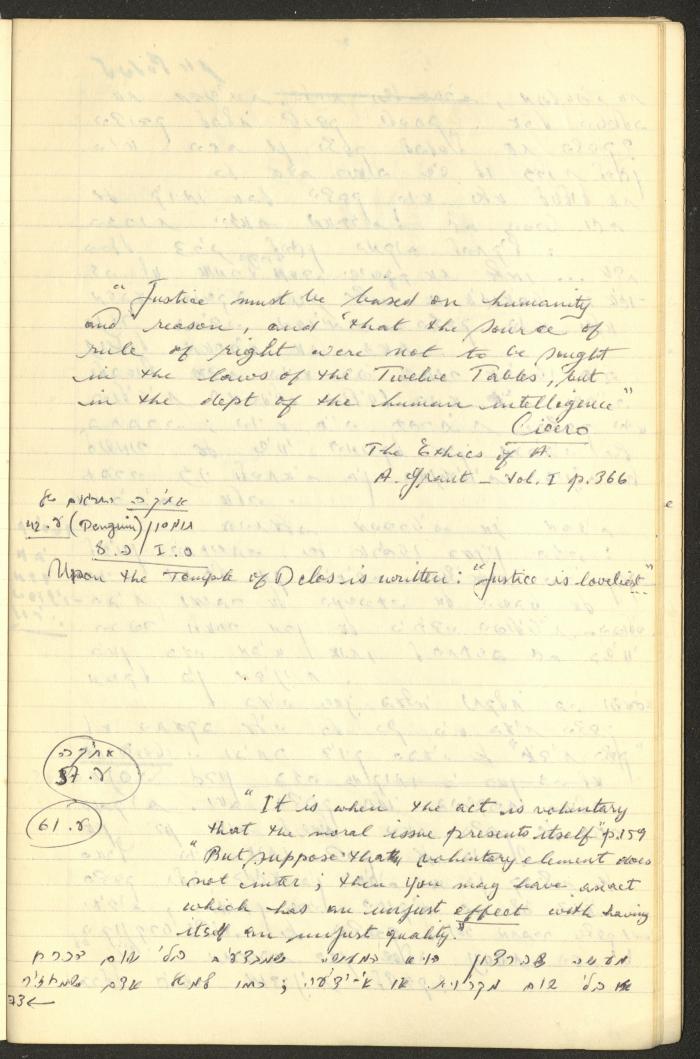 "Justice must be based on humanity
and reason, and "that the source of
rule of right were not to be sought
in the laws of the Twelve Tables, but
in the dept of the human intellegence"
Cicero
The Ethics of A.
A. Grant – Vol. I p. 366
אתיקה
תומסון (Penguin) ע. 42
I ס. 8 פ.
Upon the Temple of Delos is written: "Justice is loveliest"
אתיקה
ע. 37
ע. 61
"It is when the act is voluntary
that the moral issue presents itself" p. 159
"But suppose that voluntary element does
not inter; then you may have an act
which has an unjust effect with having
itself an unjust quality."
מעשה שברצון הוא המעשה בלי שום הכרח
או בלי שום מקריות או אי-ידיעה; כמו למשל אדם